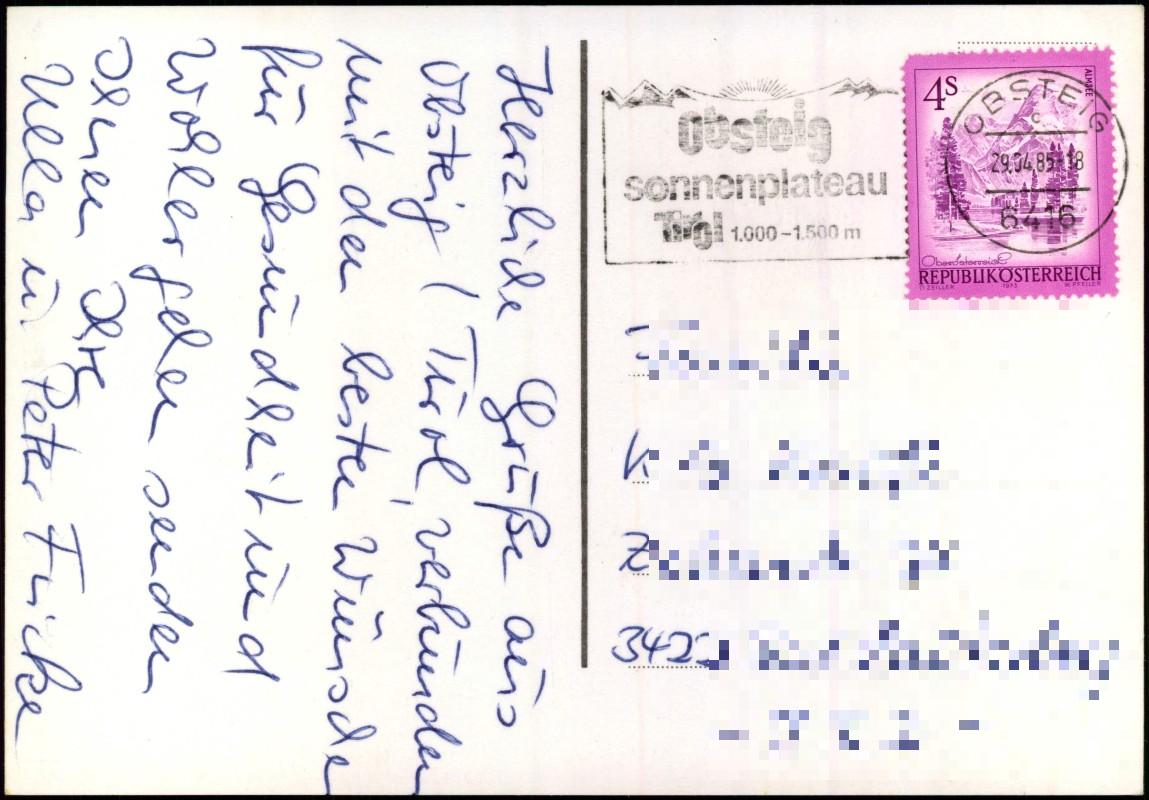 Herzliche Grüße aus
Obsteig / Tirol, verbunden
mit den besten Wünschen
für Gesundheit und
Wohlergehen senden
Ihnen Ihre
Ulla u. Peter Fricke
obsteig
sonnenplateau
Tirol 1.000 - 1.500 m
4S
ALMSEE
OBSTEIG
c
29.04.85-18
6416
Oberösterreich
REPUBLIK ÖSTERREICH
O. ZEILLER 1973 W. PFEILER
342